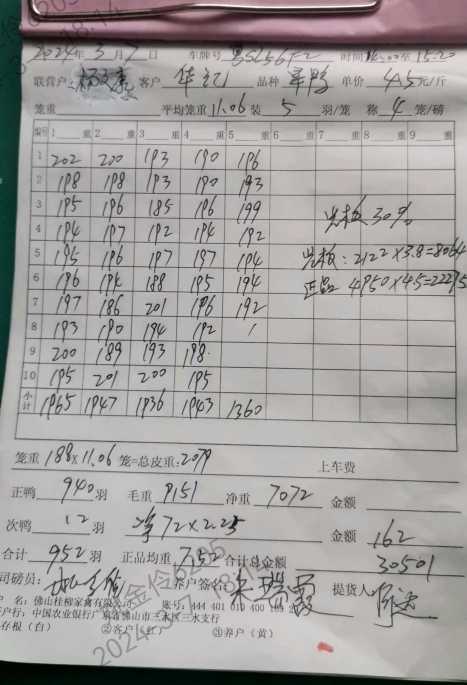 2024年3月7日 车牌号 粤SL56F2 时间 14:00至15:20
联营户: 客户 华记 品种 单价 4.5元/斤
笼重 平均笼重 11.06 装 5 羽/笼 称 4 笼/磅
编号 1 重 2 重 3 重 4 重 5 重 6 重 7 重 8 重 9 重
1 202 200 193 190 196
2 198 198 193 190 193
3 195 196 185 196 199
光板 30%
4 194 197 192 194 192
5 195 196 197 197 194
光板: 2122×3.8=8064
6 196 194 188 195 194
正品 4950×4.5=22275
7 197 186 201 196 192
8 193 190 194 192 /
9 200 189 193 198
10 195 201 200 195
小计 1965 1947 1936 1943 1360
笼重 188×11.06 笼=总皮重: 2079 上车费
正鸭 940 羽 毛重 9151 净重 7072 金额
次鸭 12 羽 净72×2.25 金额 162
合计 952 羽 正品均重 7.52 合计总金额 30501
司磅员: 养户签名 提货人
名: 佛山桂柳家禽有限公司 账号: 444 401 010 400
户行: 中国农业银行广东省佛山市三水区三水支行
存根(白) ②客户(红) ③养户(黄)